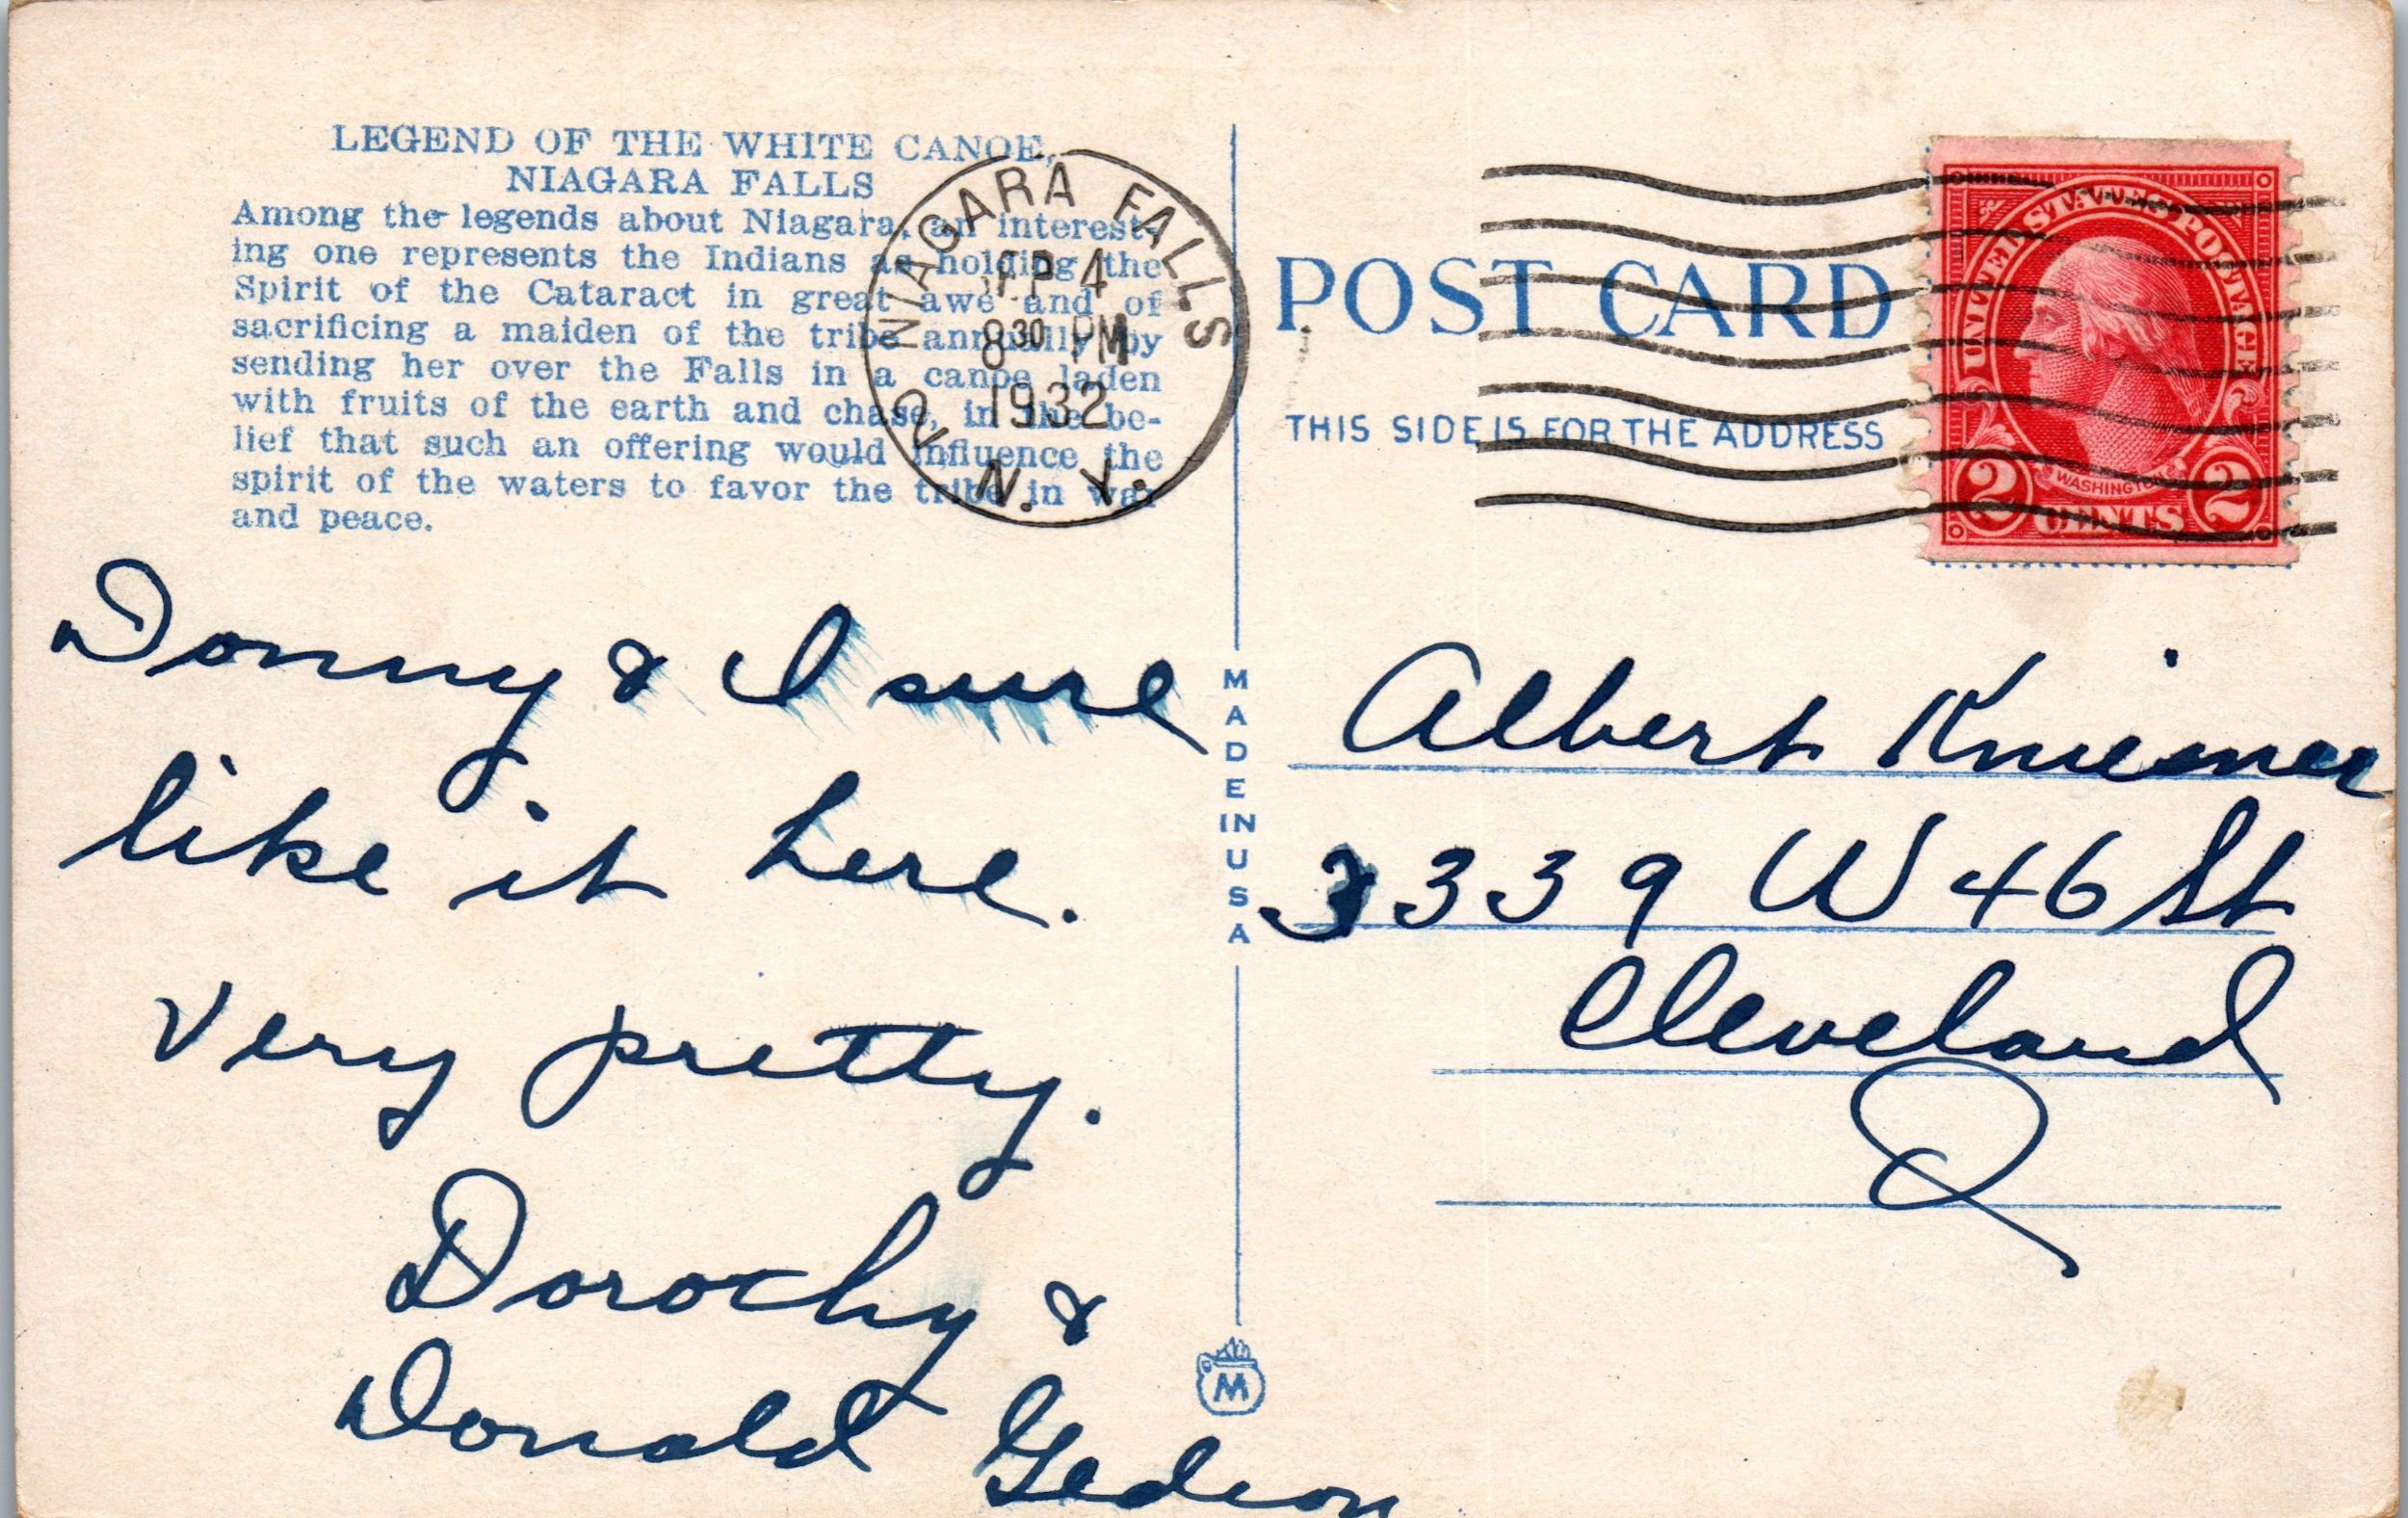 LEGEND OF THE WHITE CANOE,
NIAGARA FALLS
Among the legends about Niagara, an interest-
ing one represents the Indians as holding the
Spirit of the Cataract in great awe and of
sacrificing a maiden of the tribe annually by
sending her over the Falls in a canoe laden
with fruits of the earth and chase, in the be-
lief that such an offering would influence the
spirit of the waters to favor the tribe in war
and peace.
NIAGARA FALLS
4
8 30 PM
1932
2
N. Y.
Donny & I sure
like it here.
Very pretty.
Dorothy &
Donald Gedeon
MADE IN USA
M
POST CARD
THIS SIDE IS FOR THE ADDRESS
UNITED STATES POSTAGE
WASHINGTON
2 CENTS 2
Albert
3339 W 46 St
Cleveland
O